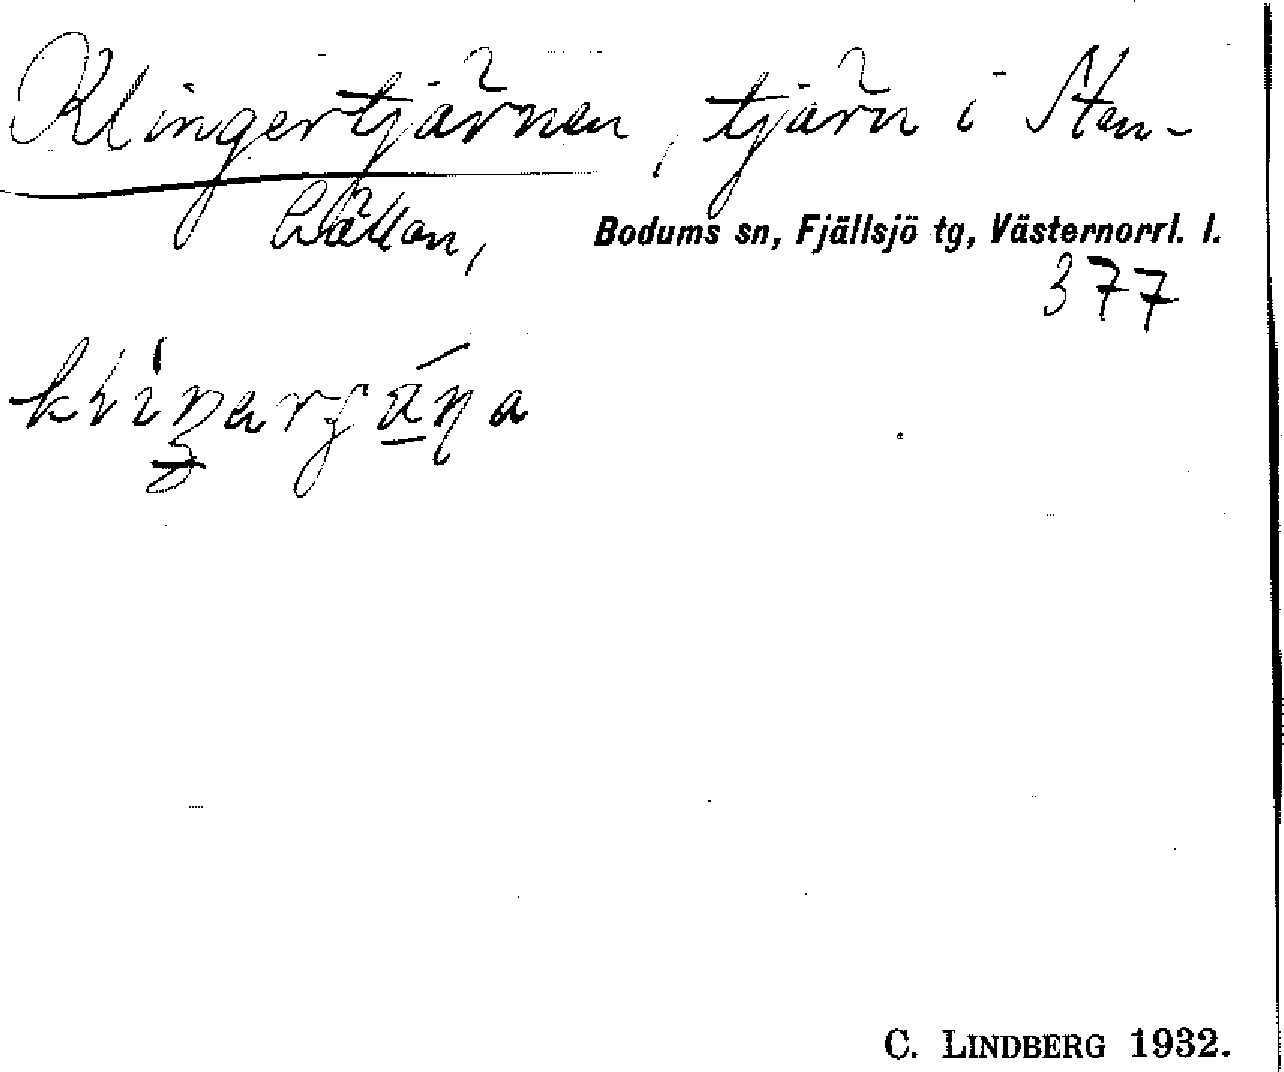 Klingertjärnen, tjärn i Sten-
Bodums sn, Fjällsjö tg, Västernorrl. l.
377
C. LINDBERG 1932.